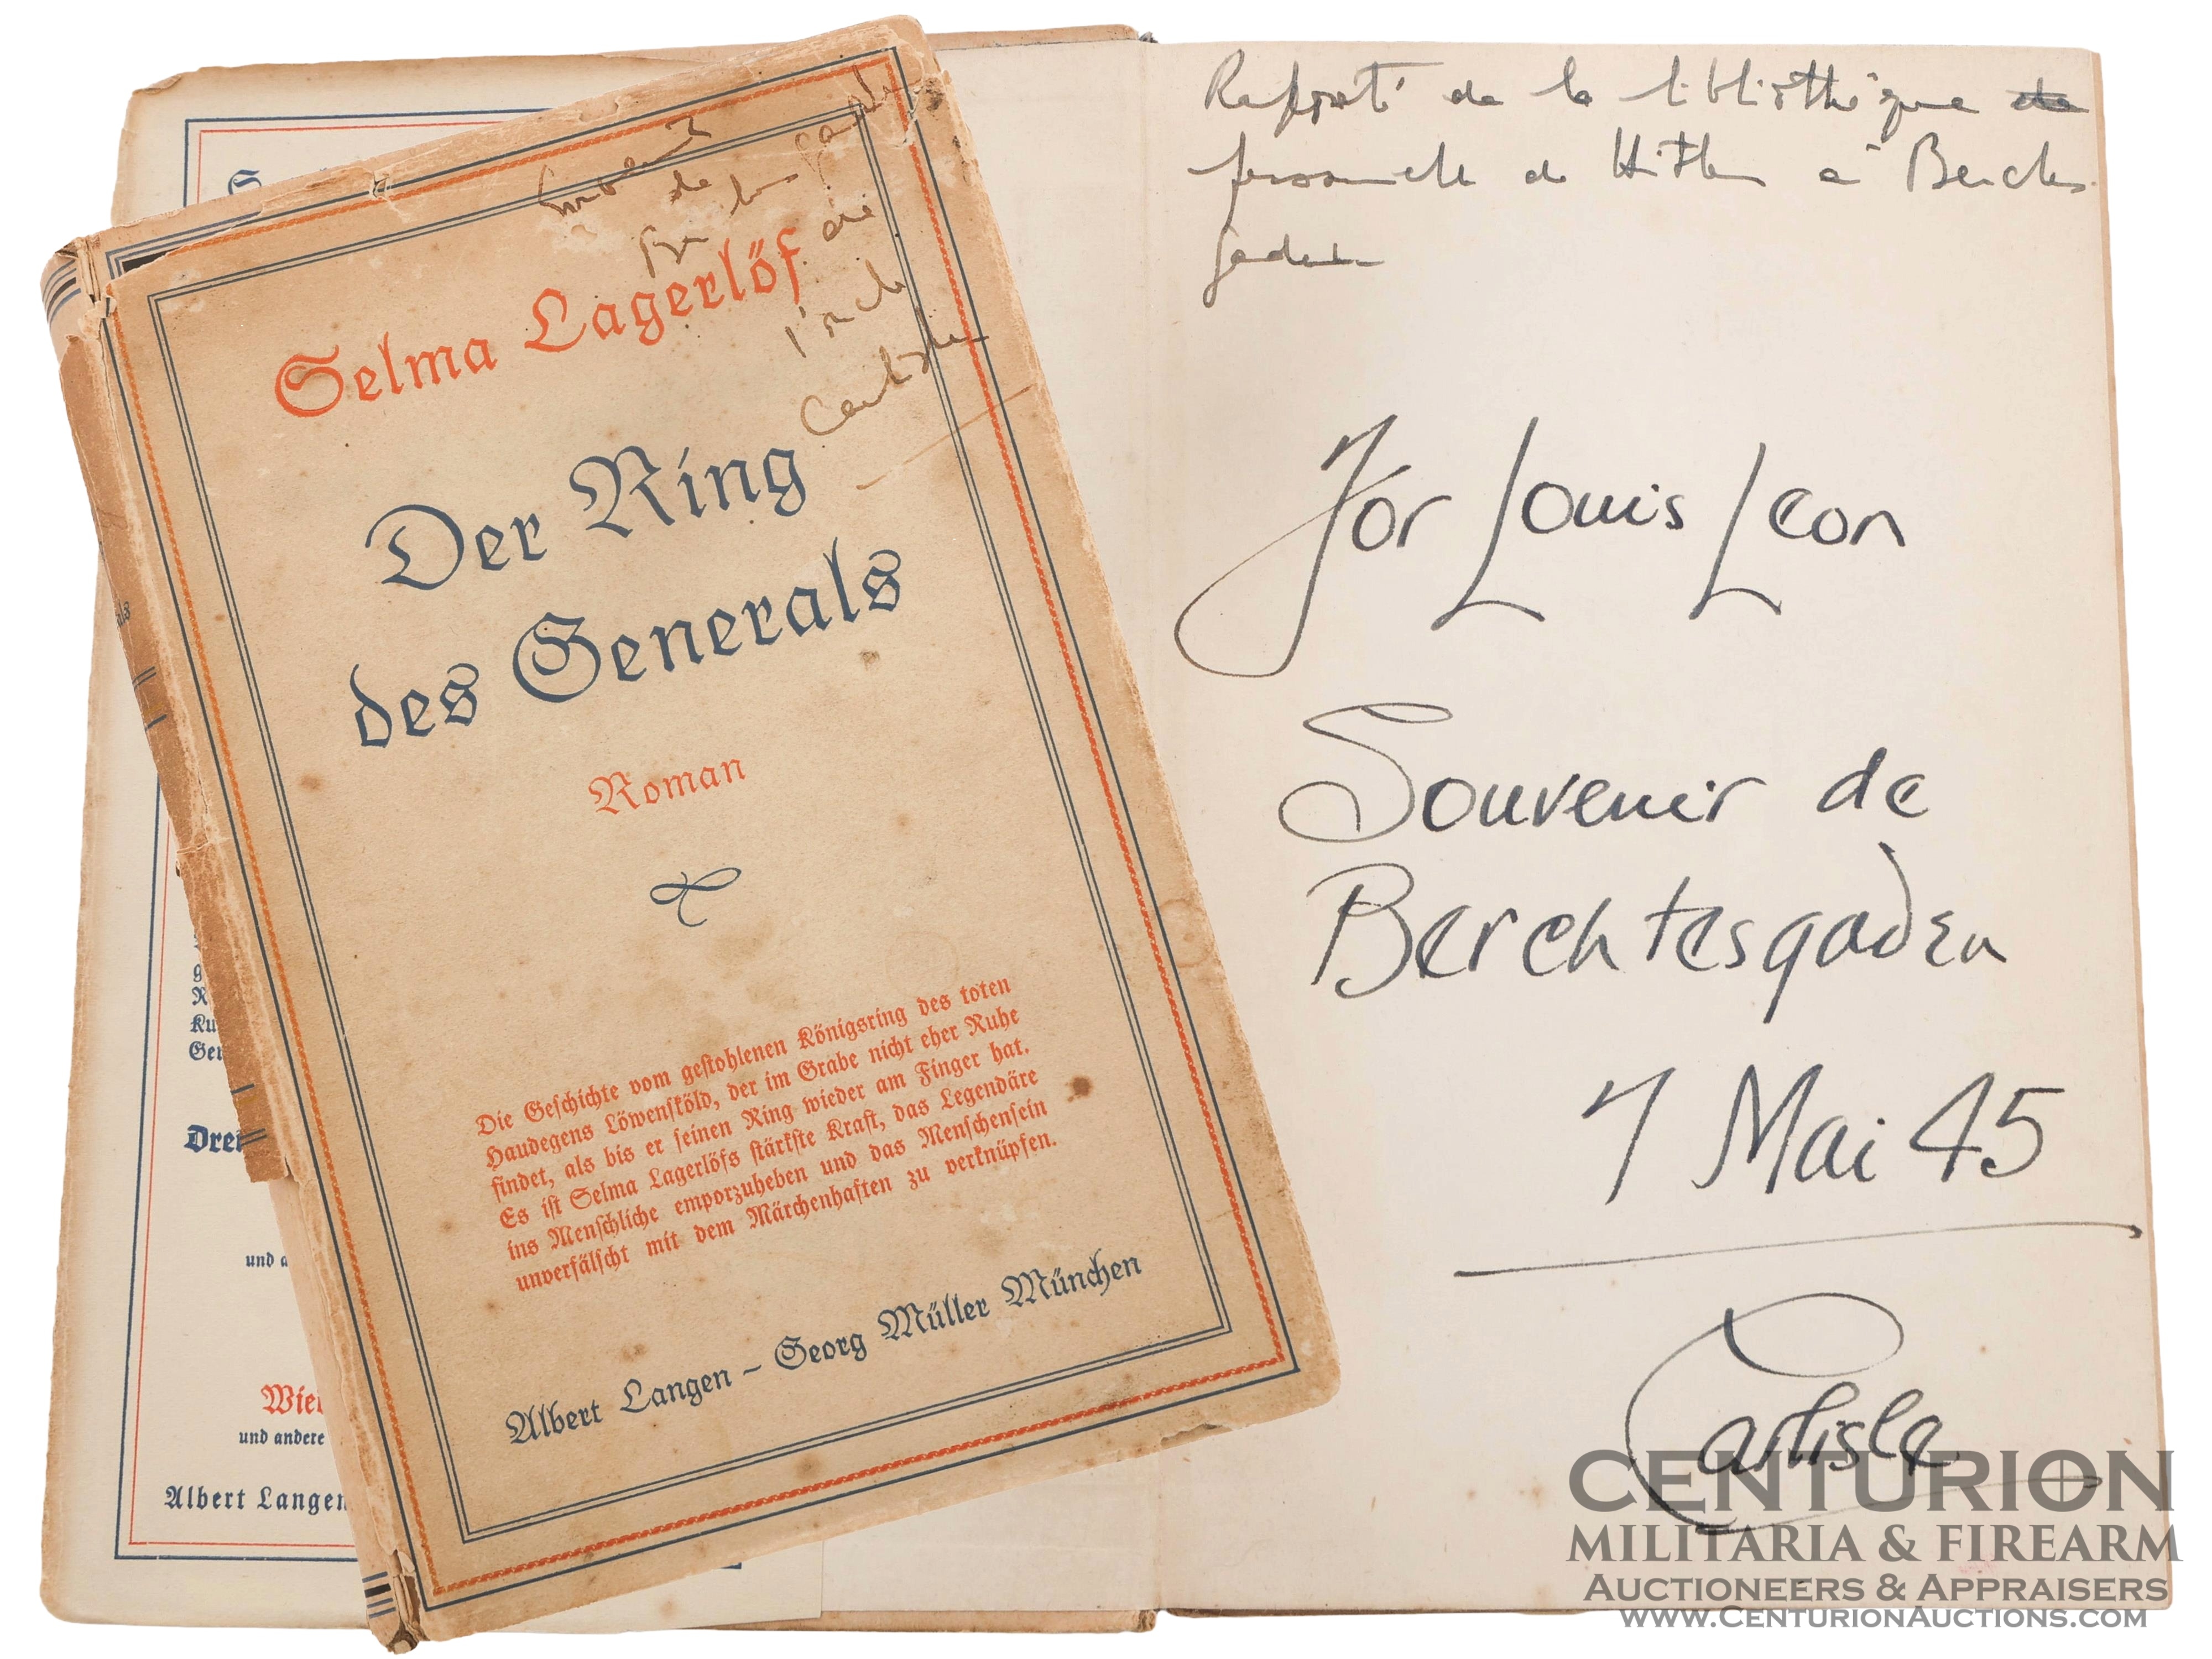 Selma Lagerlöf
Der Ring
des Generals
Roman
Die Geschichte vom gestohlenen Königsring des toten
Haudegens Löwensköld, der im Grabe nicht eher Ruhe
findet, als bis er seinen Ring wieder am Finger hat.
Es ist Selma Lagerlöfs stärkste Kraft, das Legendäre
ins Menschliche emporzuheben und das Menschensein
unverfälscht mit dem Märchenhaften zu verknüpfen.
Albert Langen – Georg Müller München
und andere
Albert Langen
Rapporté de la bibliothèque de
personnelle de Hitler à Berchtes
gaden
For Louis Leon
Souvenir de
Berchtesgaden
7 Mai 45
Carlisle
CENTURION
MILITARIA & FIREARM
AUCTIONEERS & APPRAISERS
WWW.CENTURIONAUCTIONS.COM